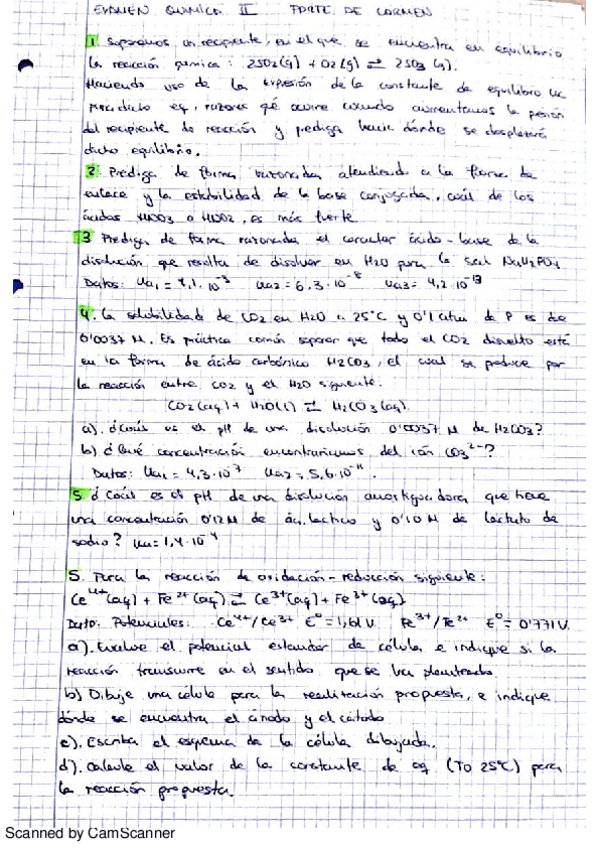 EXAMEN QUIMICA II PARTE DE CARMEN
1 Suponemos un recipiente, en el que se encuentra en equilibrio
la reacción química: 2SO2(g) + O2(g) ⇌ 2SO3(g).
Haciendo uso de la expresión de la constante de equilibrio
para dicho eq, razona qué ocurre cuando aumentamos la presión
del recipiente de reacción y prediga hacia dónde se desplazará
dicho equilibrio.
2. Prediga de forma razonada atendiendo a la fuerza de
enlace y la estabilidad de la base conjugada, cuál de los
ácidos HNO3 o HNO2, es más fuerte
3 Prediga de forma razonada el caracter ácido-base de la
disolución que resulta de disolver en H2O pura la sal NaH2PO4
Datos: Ka1 = 7,1·10-3 Ka2 = 6,3·10-8 Ka3 = 4,2·10-13
4. La solubilidad de CO2 en H2O a 25°C y 0'1 atm de P es de
0'0037 M. Es práctica común suponer que todo el CO2 disuelto está
en la forma de ácido carbónico H2CO3, el cual se produce por
la reacción entre CO2 y el H2O siguiente:
CO2(aq) + H2O(l) ⇌ H2CO3(aq).
a). ¿Cuál es el pH de una disolución 0'0037 M de H2CO3?
b) ¿Qué concentración encontraríamos del ión CO3 2-?
Datos: Ka1 = 4,3·10-7 Ka2 = 5,6·10-11.
5 ¿Cuál es el pH de una disolución amortiguadora que tiene
una concentración 0'12 M de ác. láctico y 0'10 M de lactato de
sodio? Ka = 1,4·10-4
5. Para la reacción de oxidación-reducción siguiente:
Ce4+(aq) + Fe2+(aq) ⇌ Ce3+(aq) + Fe3+(aq)
Dato: Potenciales: Ce4+/Ce3+ E° = 1,61 V. Fe3+/Fe2+ E° = 0'771 V.
a). Evalue el potencial estandar de célula e indique si la
reacción transcurre en el sentido que se ha planteado.
b) Dibuje una célula para la realización propuesta, e indique
dónde se encuentra el ánodo y el cátodo
c). Escriba el esquema de la célula dibujada.
d). Calcule el valor de la constante de eq (Tª 25°C) para
la reacción propuesta.
Scanned by CamScanner